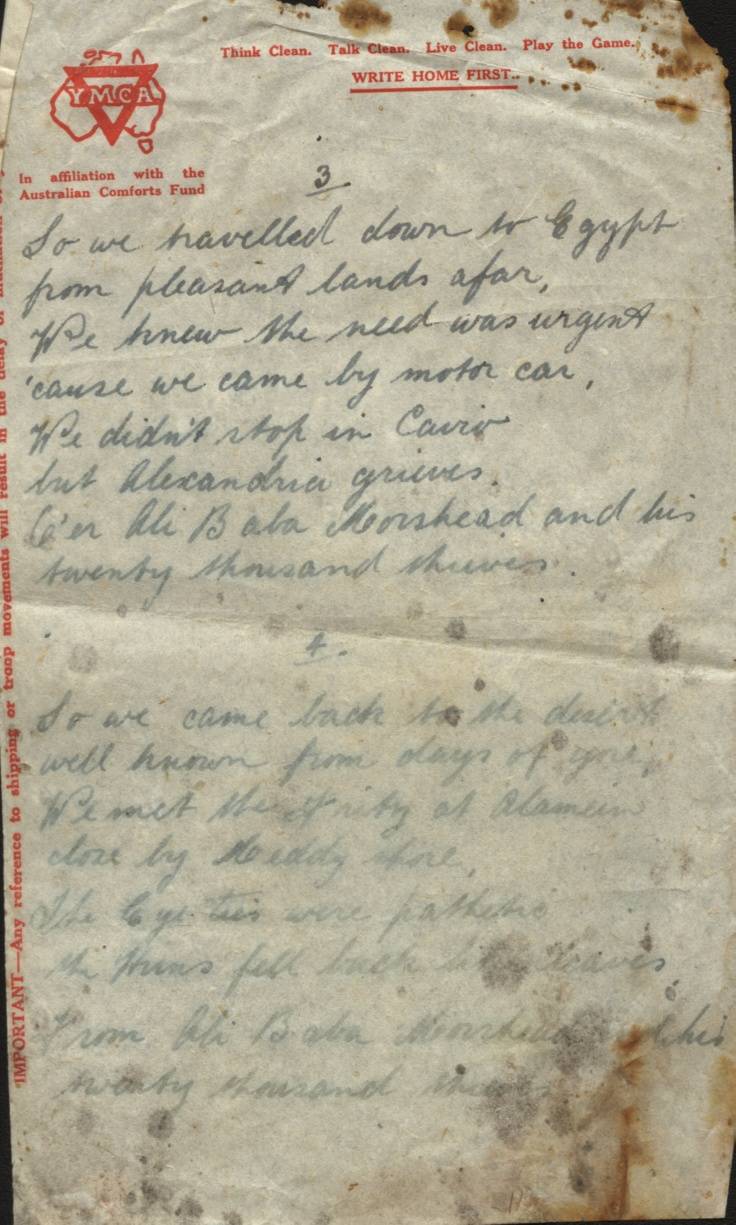 Think Clean. Talk Clean. Live Clean. Play the Game.
WRITE HOME FIRST.
YMCA
In affiliation with the
Australian Comforts Fund
3
So we travelled down to Egypt
from pleasant lands afar,
We knew the need was urgent
'cause we came by motor car,
We didn't stop in Cairo
but Alexandria grieves.
O'er Ali Baba Morshead and his
twenty thousand thieves.
4.
So we came back to the desert
well known from days of yore,
We met the at Alamein
close by Meddy shore,
The Eye ties were pathetic
the Huns fell back like leaves
From Ali Baba Morshead and his
twenty thousand thieves
IMPORTANT—Any reference to shipping or troop movements will result in the delay or